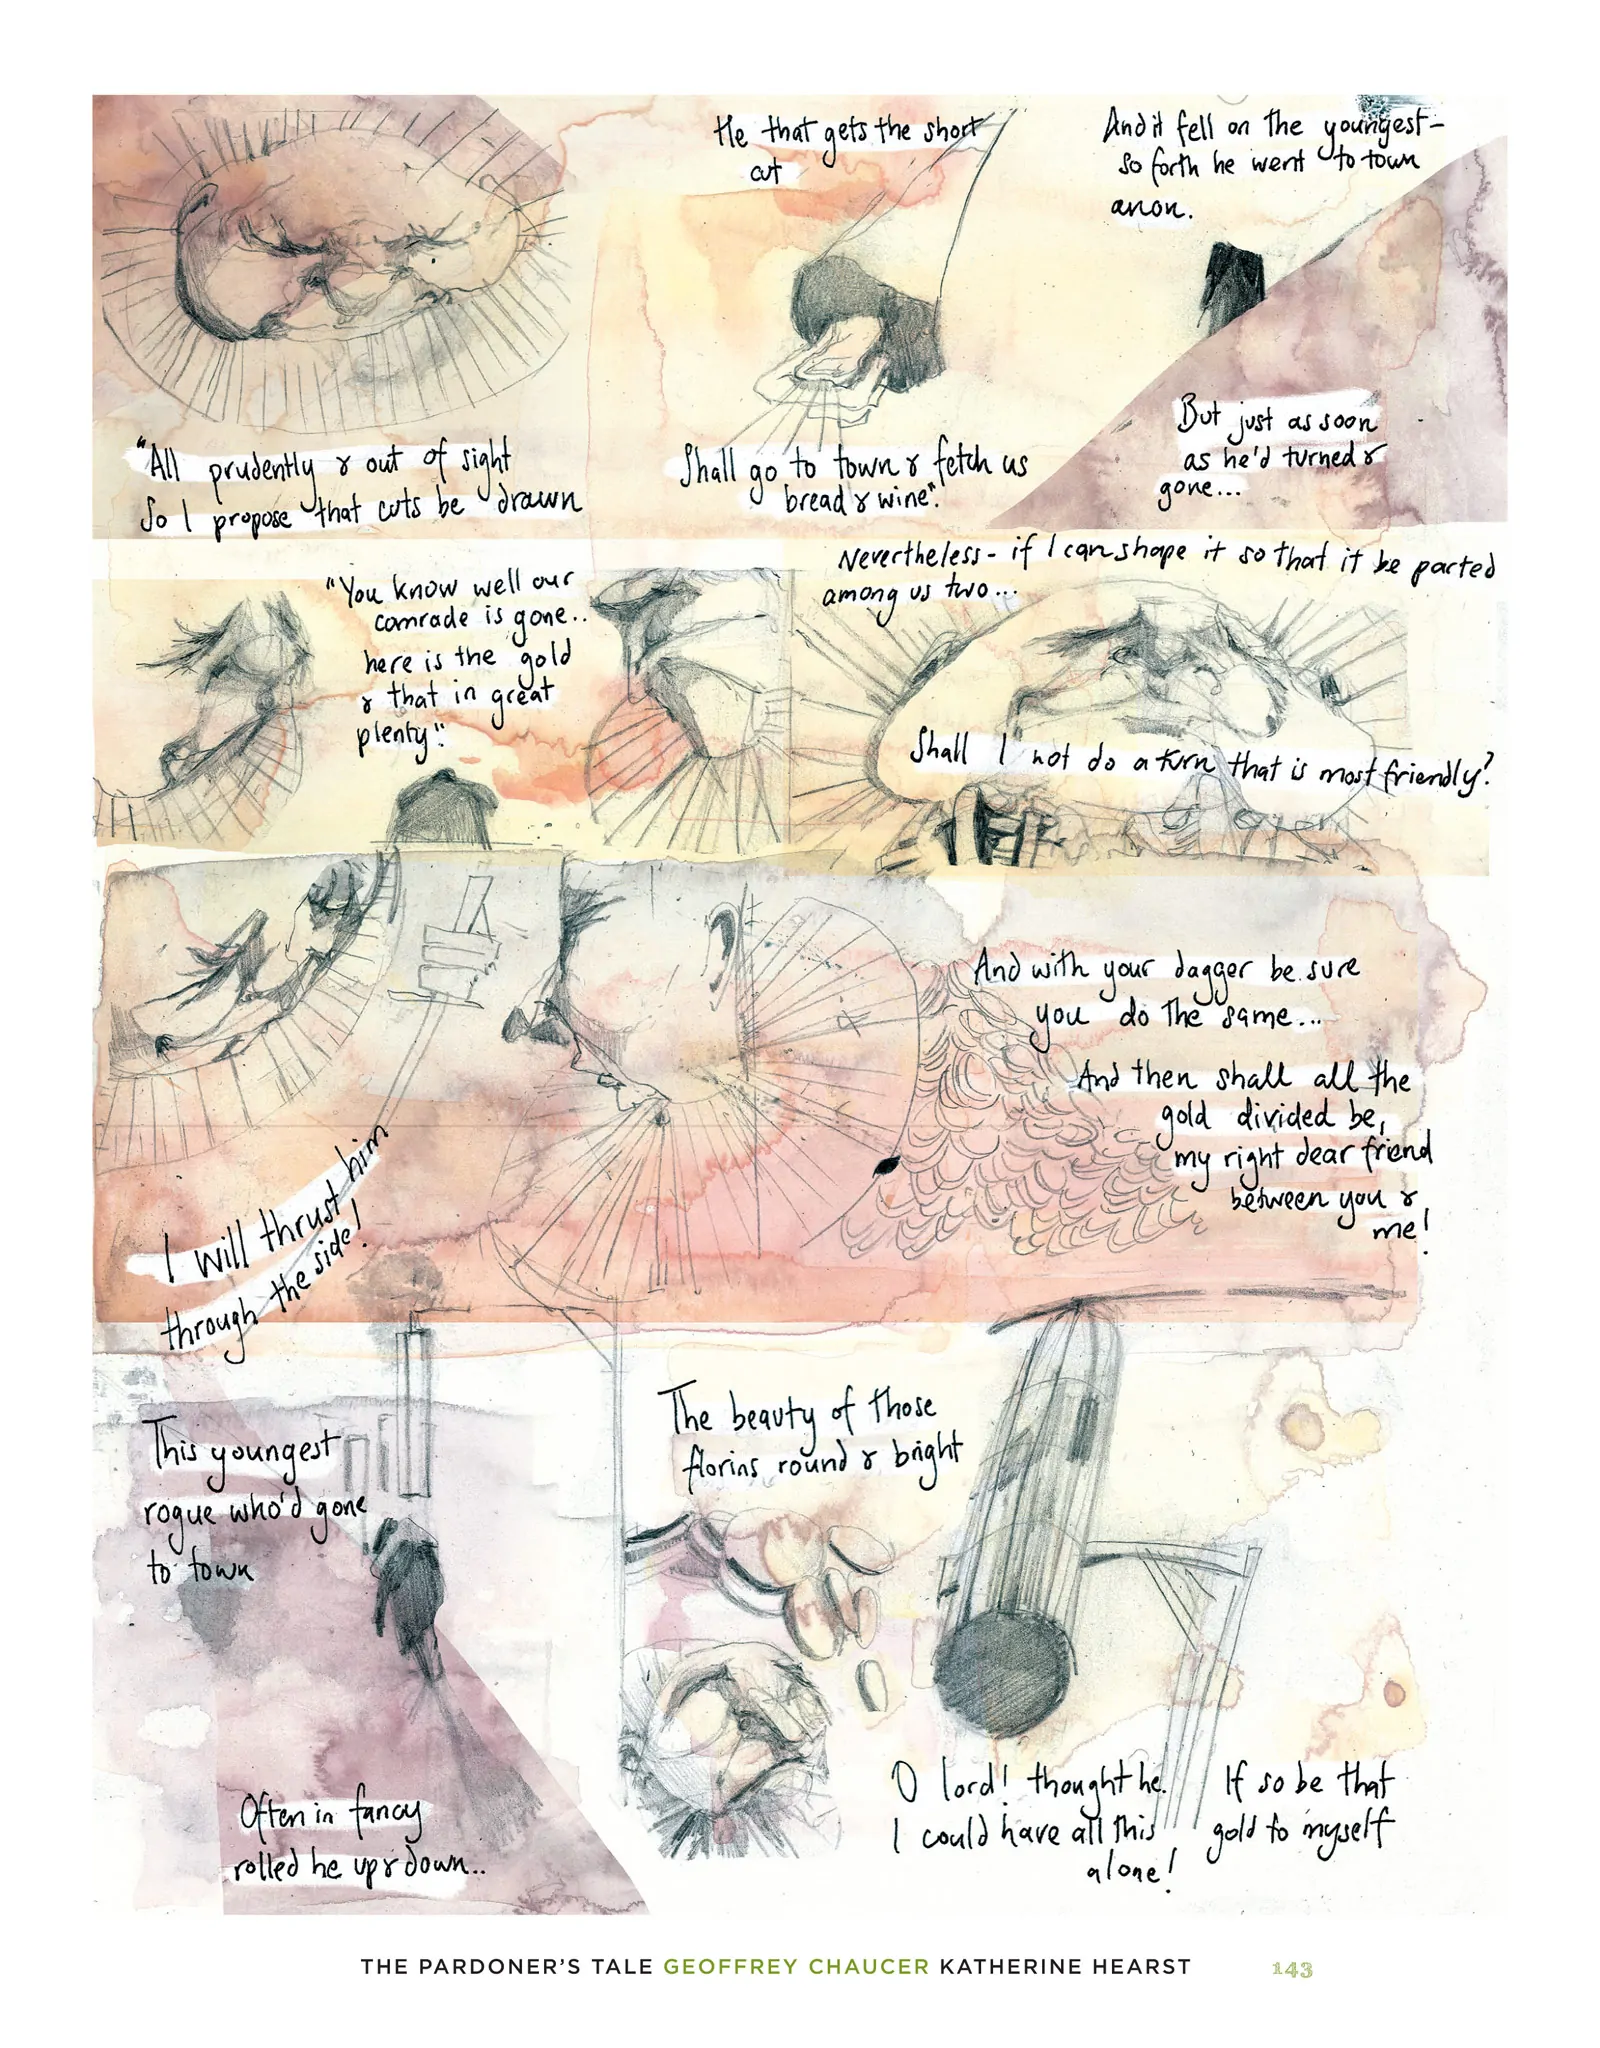 "All prudently & out of sight
So I propose that cuts be drawn
He that gets the short
cut
Shall go to town & fetch us
bread & wine".
And it fell on the youngest –
so forth he went to town
anon.
But just as soon
as he'd turned &
gone...
"You know well our
comrade is gone..
here is the gold
& that in great
plenty".
Nevertheless – if I can shape it so that it be parted
among us two...
Shall I not do a turn that is most friendly?
I will thrust him
through the side!
And with your dagger be sure
you do the same...
And then shall all the
gold divided be,
my right dear friend
between you &
me!
This youngest
rogue who'd gone
to town
Often in fancy
rolled he up & down..
The beauty of those
florins round & bright
O lord! thought he.
I could have all this
alone!
If so be that
gold to myself
THE PARDONER'S TALE GEOFFREY CHAUCER KATHERINE HEARST 143